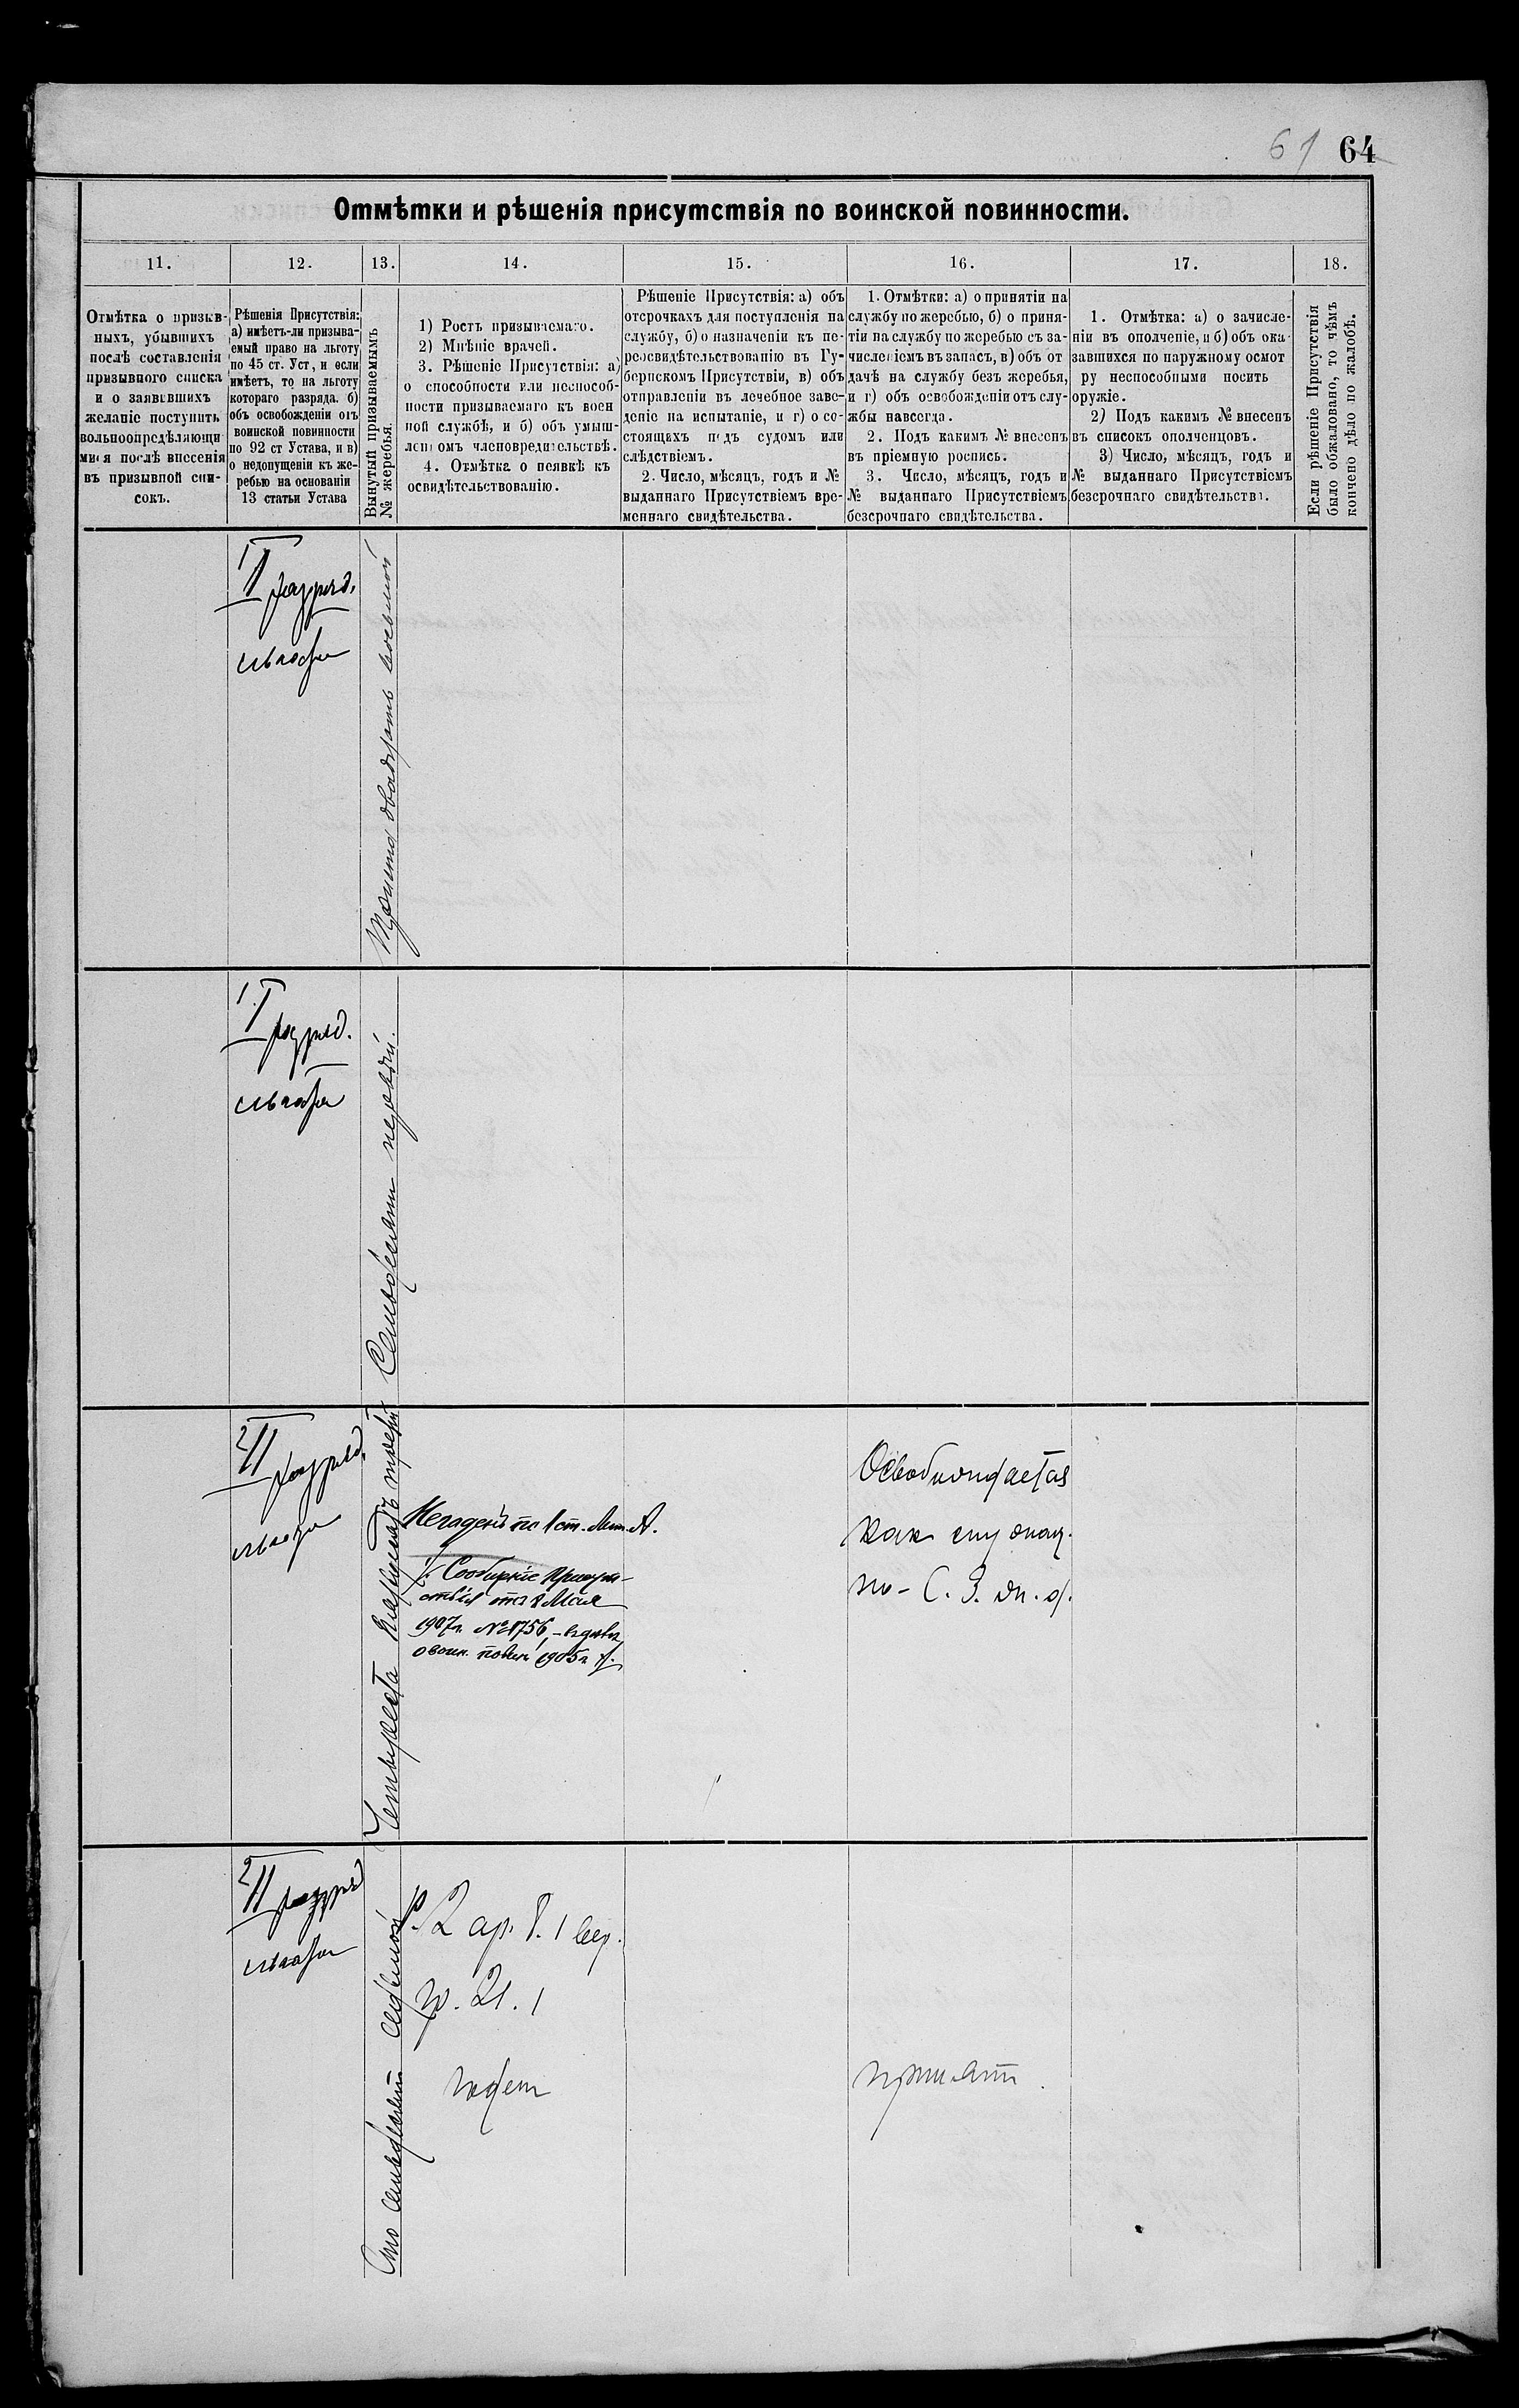 61 64
Отмѣтки и рѣшенія присутствія по воинской повинности.
11. 12. 13. 14. 15. 16. 17. 18.
Отмѣтка о призыв-
ныхъ, убывшихъ
послѣ составленія
призывного списка
и о заявившихъ
желаніе поступить
вольноопредѣляющи
мися послѣ внесенія
въ призывной спи-
сокъ.
Рѣшенія Присутствія:
а) имѣетъ-ли призыва-
емый право на льготу
по 45 ст. Уст, и если
имѣетъ, то на льготу
котораго разряда. б)
объ освобожденіи отъ
воинской повинности
по 92 ст Устава, и в)
о недопущеніи къ же-
ребью на основаніи
13 статьи Устава
Вынутый призываемымъ
№ жеребья.
1) Ростъ призываемаго.
2) Мнѣніе врачей.
3. Рѣшеніе Присутствія: а)
о способности или неспособ-
ности призываемаго къ воен
ной службѣ, и б) объ умыш-
леномъ членовредительствѣ.
4. Отмѣтка о неявкѣ къ
освидѣтельствованію.
Рѣшеніе Присутствія: а) объ
отсрочкахъ для поступленія на
службу, б) о назначеніи къ пе-
реосвидѣтельствованію въ Гу-
бернскомъ Присутствіи, в) объ
отправленіи въ лечебное заве-
деніе на испытаніе, и г) о со-
стоящахъ подъ судомъ или
слѣдствіемъ.
2. Число, мѣсяцъ, годъ и №
выданнаго Присутствіемъ вре-
меннаго свидѣтельства.
1. Отмѣтки: а) о принятіи на
службу по жеребью, б) о приня-
тіи на службу по жеребью съ за-
численіемъ въ запасъ, в) объ от
дачѣ на службу безъ жеребья,
и г) объ освобожденіи отъ слу-
жбы навсегда.
2. Подъ какимъ № внесенъ
въ пріемную роспись.
3. Число, мѣсяцъ, годъ и
№ выданнаго Присутствіемъ
безсрочнаго свидѣтельства.
1. Отмѣтка: а) о зачисле-
ніи въ ополченіе, и б) объ ока
завшихся по наружному осмот
ру неспособными носить
оружіе.
2) Подъ какимъ № внесенъ
въ списокъ ополченцовъ.
3) Число, мѣсяцъ, годъ и
№ выданнаго Присутствіемъ
безсрочнаго свидѣтельства.
Если рѣшеніе Присутствія
было обжаловано, то чѣмъ
кончено дѣло по жалобѣ.
1 I разряд.
льгота
Триста двадцать восьмой
1 I разряд.
льгота
Семьдесят первый.
2 II разряд.
льгота
Четыреста
Негоденъ по 1 ст. Лит. А.
Сообщеніе Присут-
ствія отъ 8 Мая
1907 г. № 1756, – въ дѣлѣ
о воин. повин 1905 г.
Освобождается
как
по – С. З.
2 II разряд
льгота
Сто семьдесят седьмой
р. 2 ар. 8. 1 вер.
г. 21. 1
годен
принят.